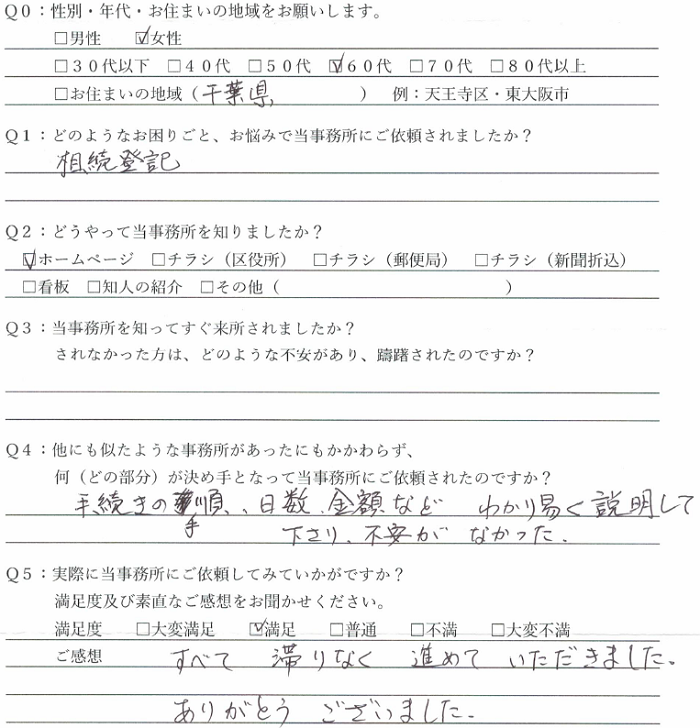 Q0：性別・年代・お住まいの地域をお願いします。
□男性 ☑女性
□30代以下 □40代 □50代 ☑60代 □70代 □80代以上
□お住まいの地域（千葉県 ） 例：天王寺区・東大阪市
Q1：どのようなお困りごと、お悩みで当事務所にご依頼されましたか？
相続登記
Q2：どうやって当事務所を知りましたか？
☑ホームページ □チラシ（区役所） □チラシ（郵便局） □チラシ（新聞折込）
□看板 □知人の紹介 □その他（ ）
Q3：当事務所を知ってすぐ来所されましたか？
されなかった方は、どのような不安があり、躊躇されたのですか？
Q4：他にも似たような事務所があったにもかかわらず、
何（どの部分）が決め手となって当事務所にご依頼されたのですか？
手続きの手順、日数、金額など わかり易く説明して
下さり、不安が なかった.
Q5：実際に当事務所にご依頼してみていかがですか？
満足度及び素直なご感想をお聞かせください。
満足度 □大変満足 ☑満足 □普通 □不満 □大変不満
ご感想 すべて 滞りなく 進めて いただきました。
ありがとう ございました.